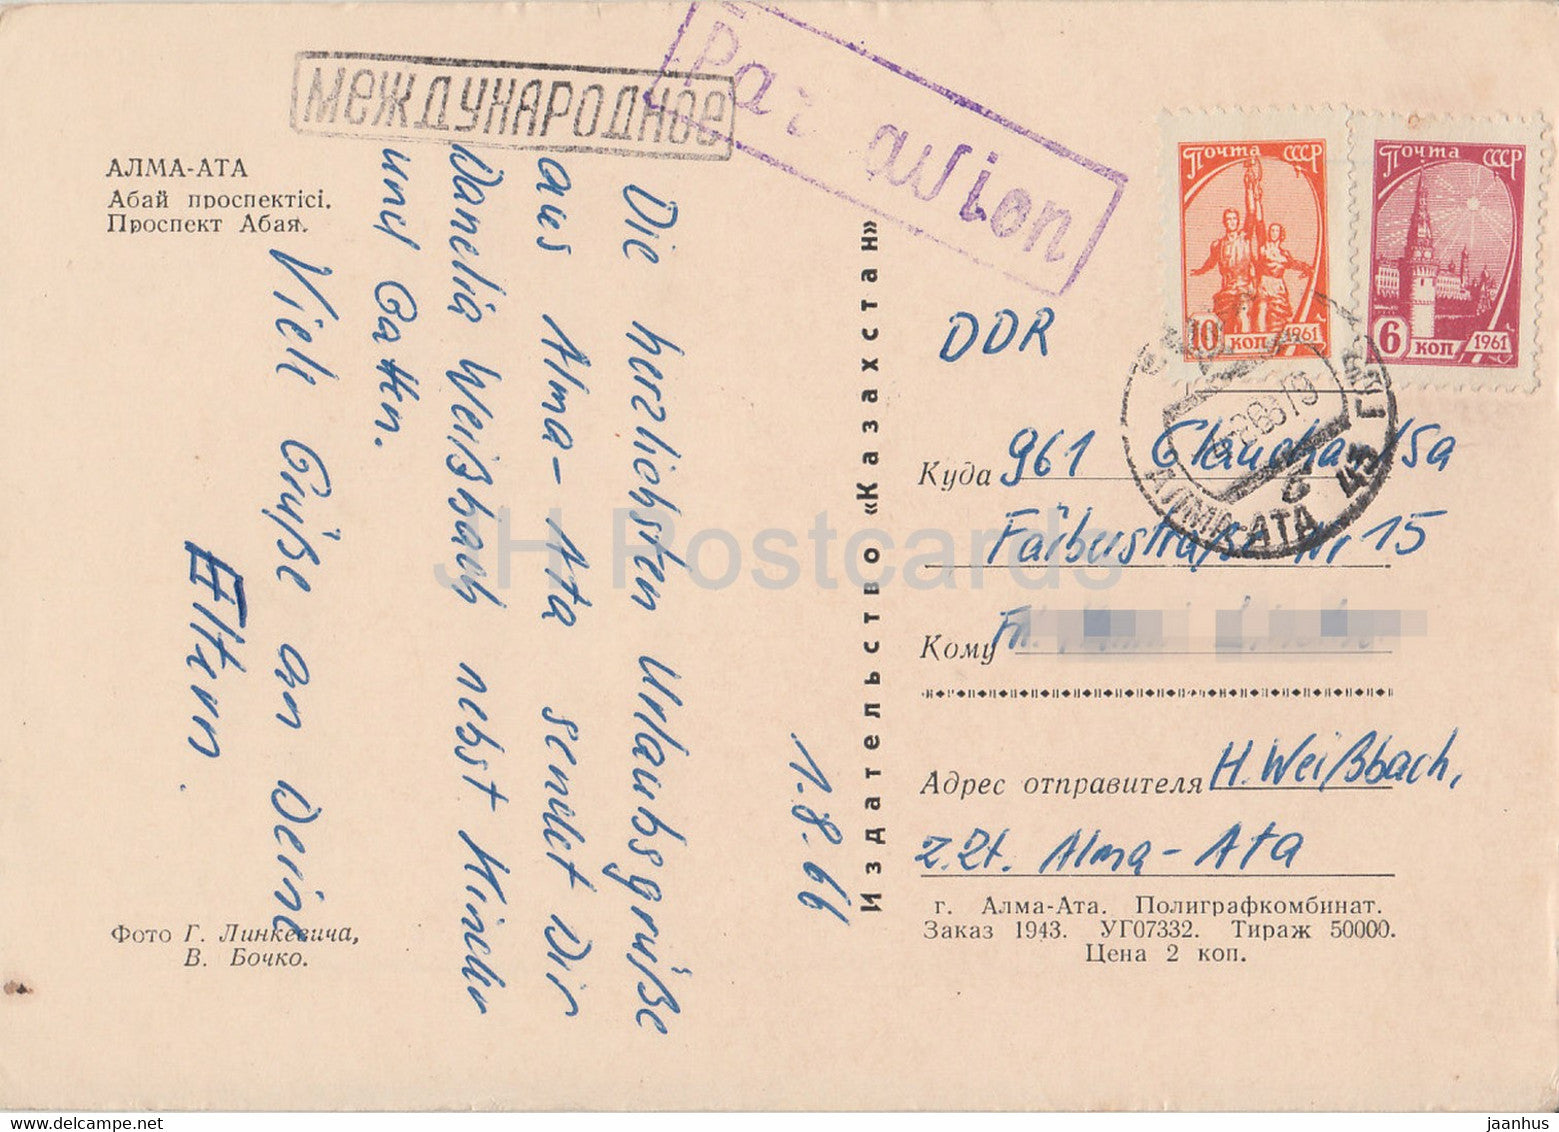 АЛМА-АТА
Абай проспектісі.
Проспект Абая.
МЕЖДУНАРОДНОЕ
Par avion
1.8.66
Die herzlichsten Urlaubsgrüße
aus Alma-Ata sendet Dir
Danelia Weißbach nebst Kinder
und Gatten.
Viele Grüße an Deine
Eltern.
Фото Г. Линкевича,
В. Бочко.
Издательство «Казахстан»
Почта СССР
10 коп 1961
Почта СССР
6 коп 1961
АЛМА-АТА
DDR
Куда 961 Glauchau/Sa
Färberstraße Nr 15
Кому
Адрес отправителя H. Weißbach,
z.Zt. Alma-Ata
г. Алма-Ата. Полиграфкомбинат.
Заказ 1943. УГ07332. Тираж 50000.
Цена 2 коп.
JH Postcards
www.delcampe.net
jaanhus